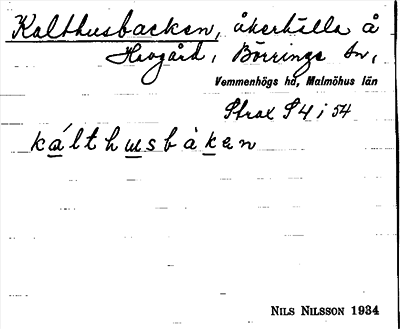 Kalthusbacken, åkerhälla å
Havgård, Börringe sn,
Vemmenhögs hd, Malmöhus län
Strax S 4 i 54
kálthusbàken
NILS NILSSON 1934